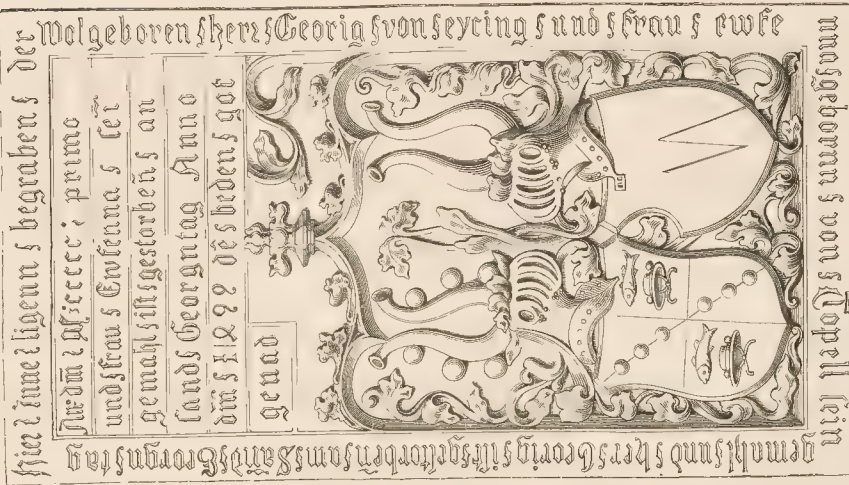 hier Inne ligenn begraben der
Wolgeboren herr Georig von eycing und frau ewfe
nna gebornn von Topell sein
gemahl und her Georig ist gestorbeñ am Sand Georgns tag
dm̃ M ccccc primo
und frau Ewfenna
gemahl ist gestorbeñ an
sand Georgntag Anno
dm̃ 1292 dẽ beden got
genad